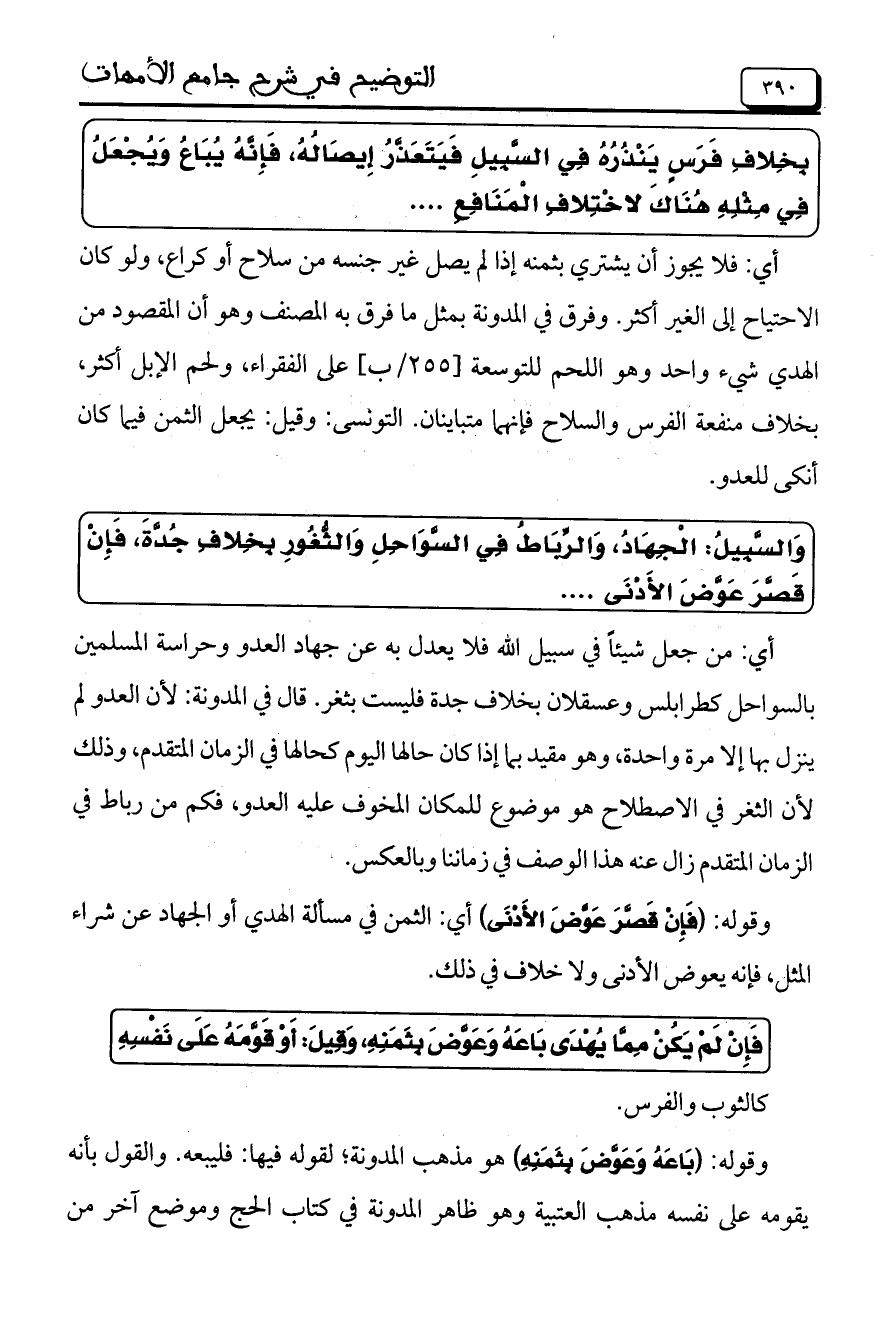 ٣٩٠
التوضيح في شرح جامع الأمهات
بِخِلافِ فَرَسٍ يَنْذُرُهُ فِي السَّبِيلِ فَيَتَعَذَّرُ إِيصَالُهُ، فَإِنَّهُ يُبَاعُ وَيُجْعَلُ
فِي مِثْلِهِ هُنَاكَ لاخْتِلافِ الْمَنَافِعِ ....
أي: فلا يجوز أن يشتري بثمنه إذا لم يصل غير جنسه من سلاح أو كراع، ولو كان
الاحتياح إلى الغير أكثر. وفرق في المدونة بمثل ما فرق به المصنف وهو أن المقصود من
الهدي شيء واحد وهو اللحم للتوسعة [٢٥٥/ب] على الفقراء، ولحم الإبل أكثر،
بخلاف منفعة الفرس والسلاح فإنهما متباينان. التونسى: وقيل: يجعل الثمن فيما كان
أنكى للعدو.
وَالسَّبِيلُ: الْجِهَادُ، وَالرِّبَاطُ فِي السَّوَاحِلِ وَالثُّغُورِ بِخِلافِ جُدَّةَ، فَإِنْ
قَصَّرَ عَوَّضَ الأَدْنَى ....
أي: من جعل شيئاً في سبيل الله فلا يعدل به عن جهاد العدو وحراسة المسلمين
بالسواحل كطرابلس وعسقلان بخلاف جدة فليست بثغر. قال في المدونة: لأن العدو لم
ينزل بها إلا مرة واحدة، وهو مقيد بما إذا كان حالها اليوم كحالها في الزمان المتقدم، وذلك
لأن الثغر في الاصطلاح هو موضوع للمكان المخوف عليه العدو، فكم من رباط في
الزمان المتقدم زال عنه هذا الوصف في زماننا وبالعكس.
وقوله: (فَإِنْ قَصَّرَ عَوَّضَ الأَدْنَى) أي: الثمن في مسألة الهدي أو الجهاد عن شراء
المثل، فإنه يعوض الأدنى ولا خلاف في ذلك.
فَإِنْ لَمْ يَكُنْ مِمَّا يُهْدَى بَاعَهُ وَعَوَّضَ بِثَمَنِهِ، وَقِيلَ: أَوْ قَوَّمَهُ عَلَى نَفْسِهِ
كالثوب والفرس.
وقوله: (بَاعَهُ وَعَوَّضَ بِثَمَنِهِ) هو مذهب المدونة؛ لقوله فيها: فليبعه. والقول بأنه
يقومه على نفسه مذهب العتبية وهو ظاهر المدونة في كتاب الحج وموضع آخر من